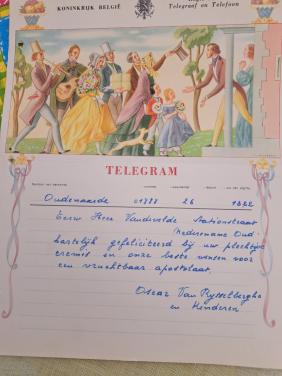 KONINKRIJK BELGIË
Telegraaf en Telefoon
TELEGRAM
Oudenaarde 01888 26 1622
Eerw Heer Vandevelde Stationstraat
Nederename Oud.
hartelijk gefeliciteerd bij uw plechtige
eremis en onze beste wensen voor
een vruchtbaar apostolaat.
Oscar Van Rysselberghe
en Kinderen